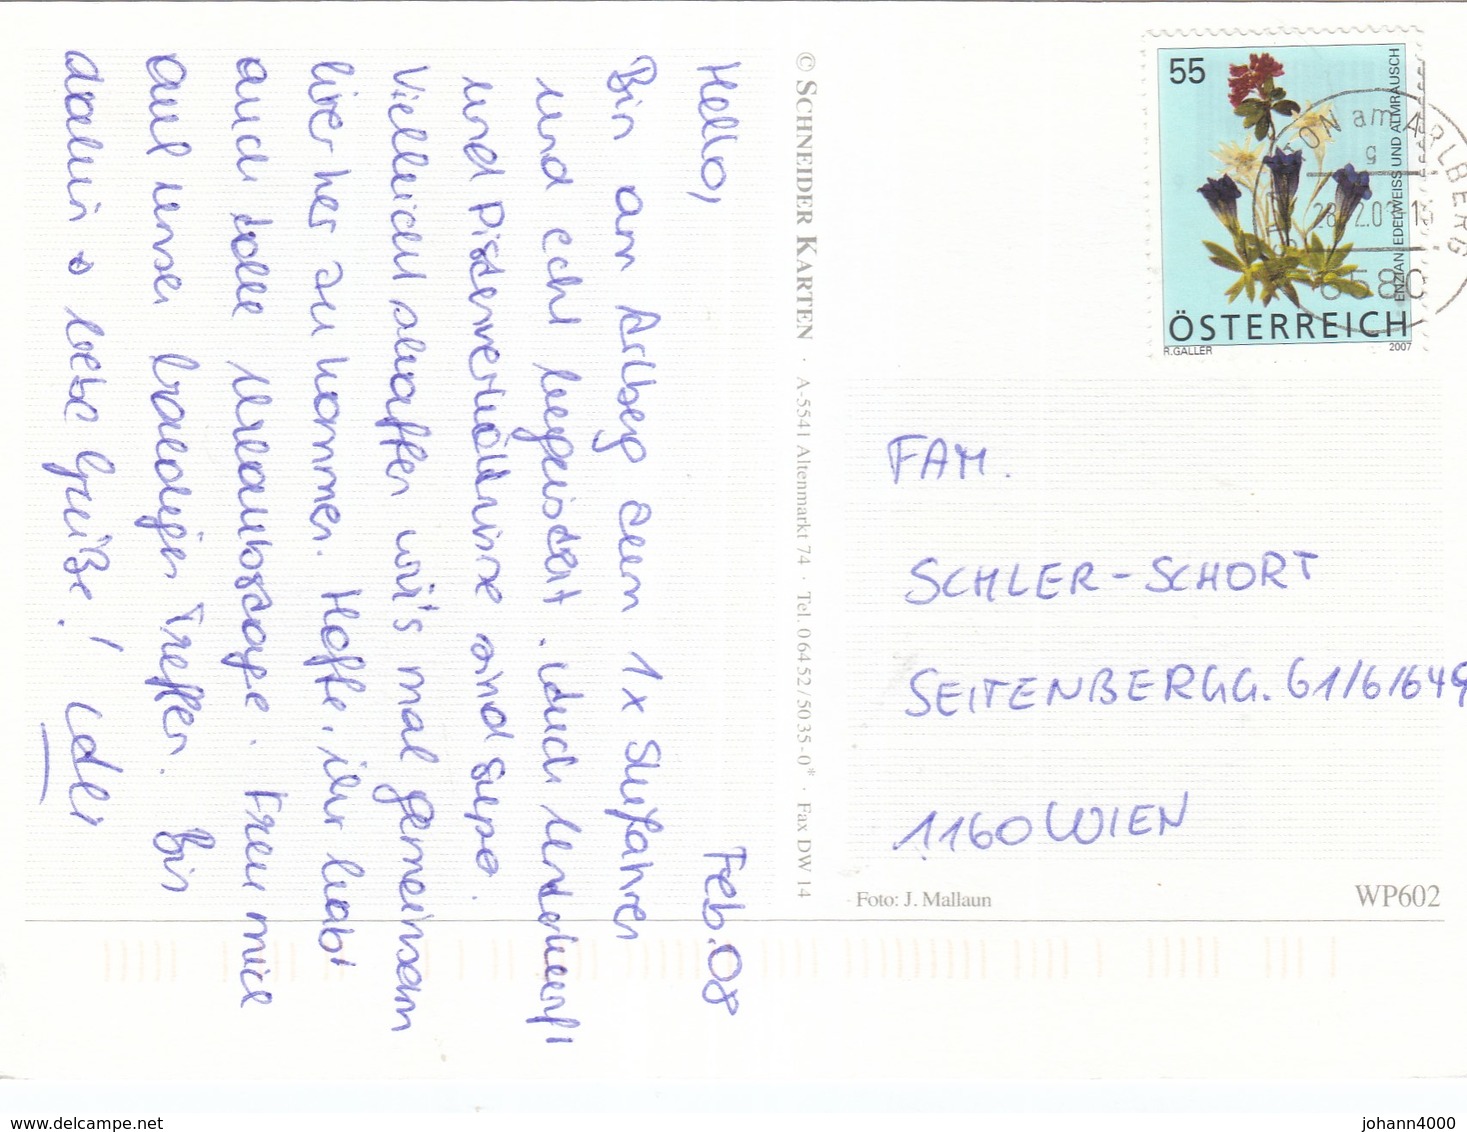 Hello, Feb. 08
Bin am Arlberg zum 1x Skifahren
und echt begeistert. Auch Unterkunft
und Pistenverhältnisse sind super.
Vielleicht schaffen wir's mal gemeinsam
hier her zu kommen. Hoffe, ihr habt
auch tolle Urlaubstage. Freu mich
auf unser baldiges Treffen. Bis
dahin s liebe Grüße!
© SCHNEIDER KARTEN · A-5541 Altenmarkt 74 · Tel. 06452/5035-0* · Fax DW 14
55
ENZIAN, EDELWEISS UND ALMRAUSCH
ÖSTERREICH
R.GALLER 2007
TON am ARLBERG
g
6580
FAM.
SCHLER-SCHORT
SEITENBERGG. 61/6/649
1160 WIEN
Foto: J. Mallaun
WP602
www.delcampe.net
johann4000